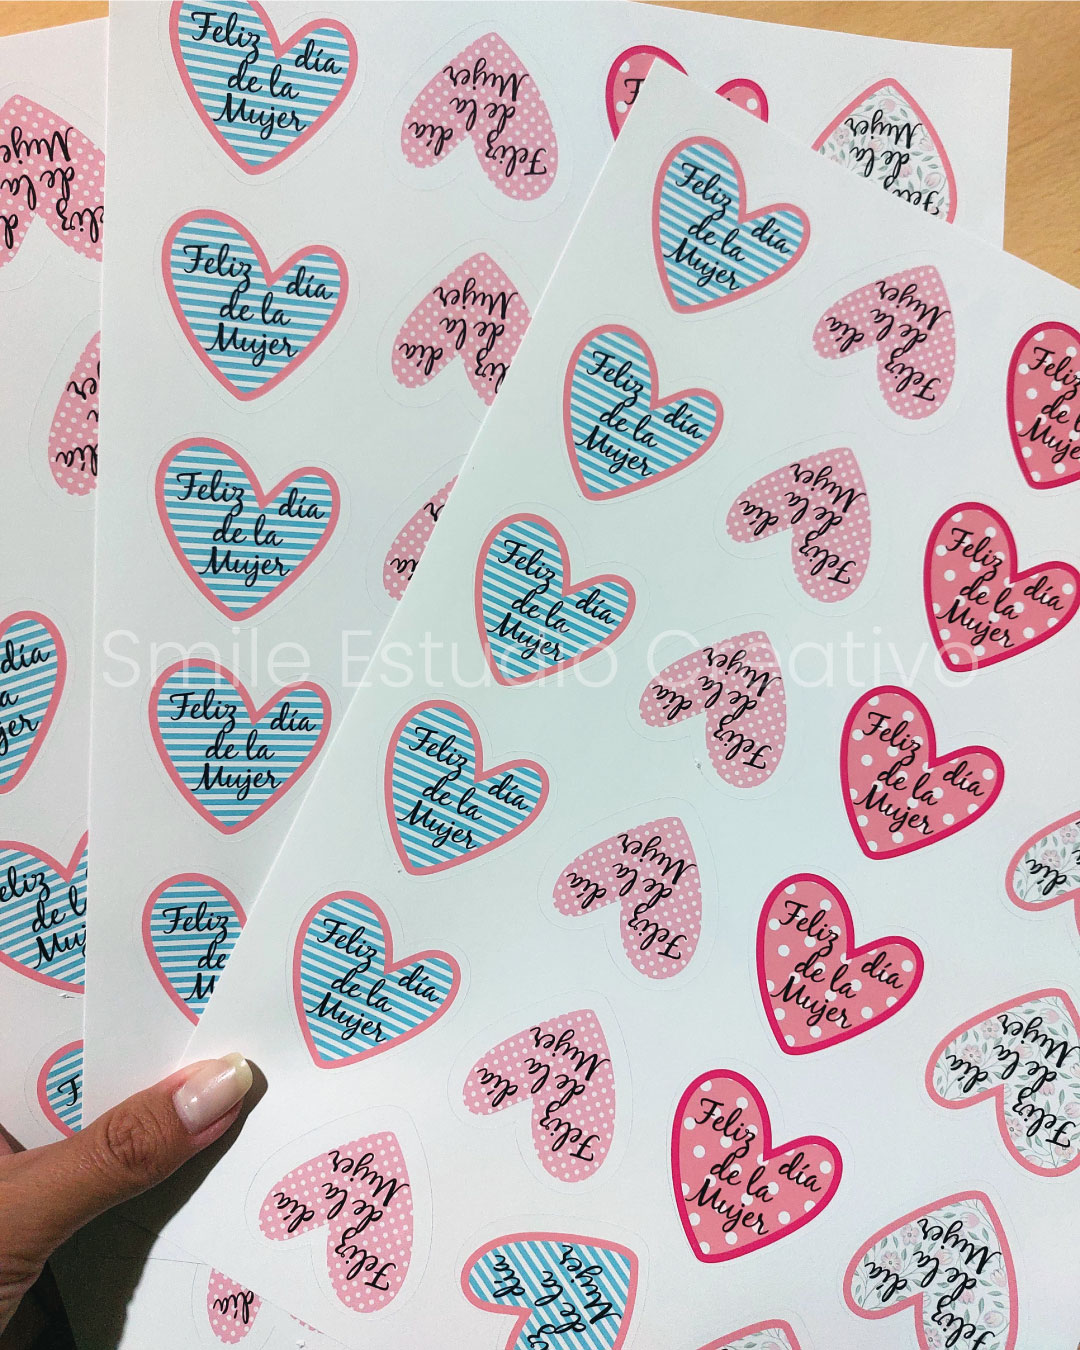 Feliz día
de la
Mujer
Feliz día
de la
Mujer
Feliz día
de la
Mujer
Feliz día
de la
Mujer
Feliz día
de la
Mujer
día
de la
Mujer
Feliz
de la
Mujer
Feliz día
de la
Mujer
Feliz día
de la
Mujer
Feliz día
de la
Mujer
Feliz día
de la
Mujer
Feliz día
de la
Mujer
Feliz día
de la
Mujer
Feliz día
de la
Mujer
Feliz día
de la
Mujer
Feliz día
de la
Mujer
Feliz día
de la
Mujer
Smile Estudio Creativo
Feliz día
de la
Mujer
Feliz día
de la
Mujer
Feliz día
de la
Mujer
Feliz día
de la
Mujer
Feliz día
de la
Mujer
Feliz día
de la
Mujer
Feliz día
de la
Mujer
Feliz
día
día
de la
Mujer
día